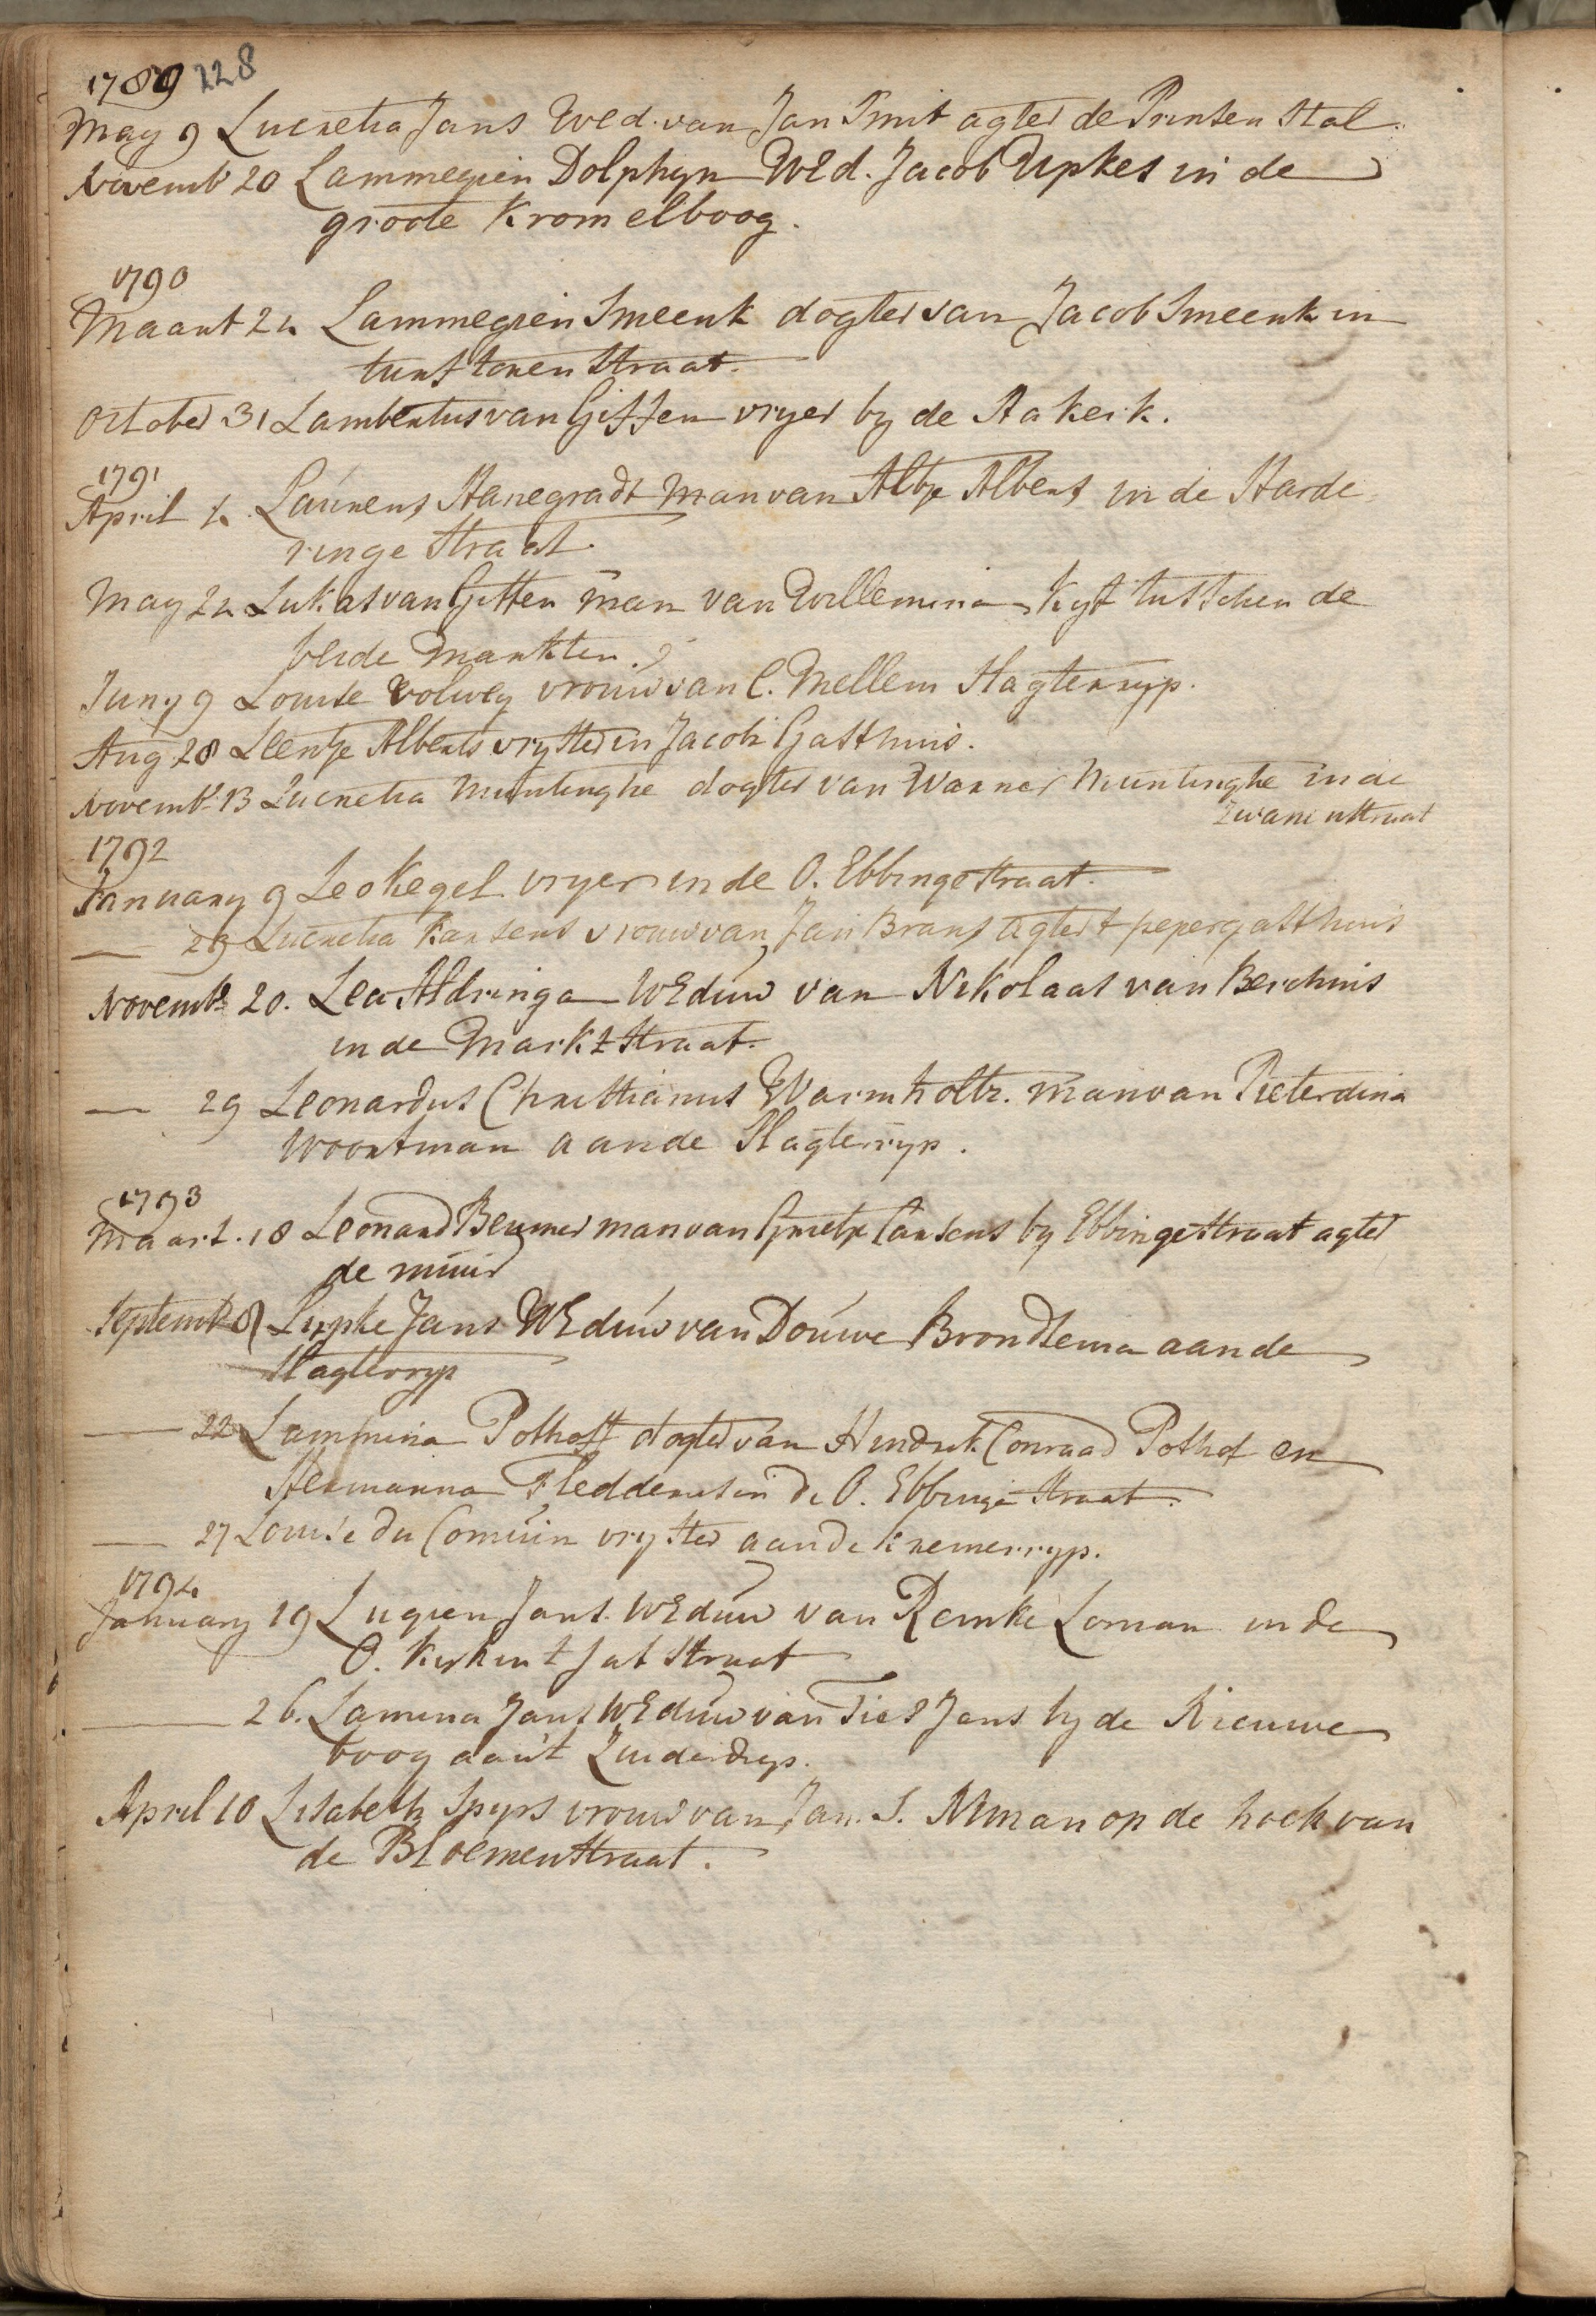 1789 228
May 9 Lucretia Jans Wed. van Jan Smit agter de Prinsen Stal.
Novemb 20 Lammegien Dolphyn Wed. Jacob Upkes in de
groote Kromelboog.
1790
Maart 24 Lammegien Smeenk dogter van Jacob Smeenk in
turfstoren Straat.
October 31 Lambertus van Giffen vryer by de Aa kerk.
1791
April 4 Laurens Hanegradt Man van Altje Alberts in de Harde
ringe Straat.
May 24 Lukas van Giffen man van Willemina Kyf tusschen de
beide Markten.
Juny 9 Louise Volwey vrouw van C. Mellem Hagterryp.
Aug 28 Leentje Alberts vryster in Jacobi Gasthuis.
Novemb. 13 Lucretia Muntinghe dogter van Warner Muntinghe in de
Zwanenstraat
1792
January 9 Leo Kegel vryer in de O. Ebbingestraat.
— 29 Lucretia Karsens vrouw van Jan Brans agter t pepergasthuis
Novemb. 20. Lea Aldringa Weduw van Nikolaas van Berchuis
in de Markt Straat.
— 29 Leonardus Christianus Warmholtz. man van Pieterdina
Woortman aan de Hagterryp.
1793
Maart. 18 Leonard Beumer man van Grietje Carsens by Ebbingestraat agter
de muur
Septemb 8 Lupke Jans Weduw van Douwe Brondsema aan de
Hagterryp
— 22 Lammina Pothoff dogter van Hindrik Conraad Pothof en
Hermanna Fledderus in de O. Ebbinge Straat.
— 27 Louise du Comuin vryster aan de Kremerryp.
1794
January 19 Lugien Jans. Weduw van Remke Loman in de
O. Kirkent Jat Straat
— 26. Lamina Jans Weduw van Ties Jans by de Nieuwe
boog aan't Zuiderdiep.
April 10 Lisabeth Spyrs vrouw van Jan. S. Niman op de hoek van
de Bloemenstraat.